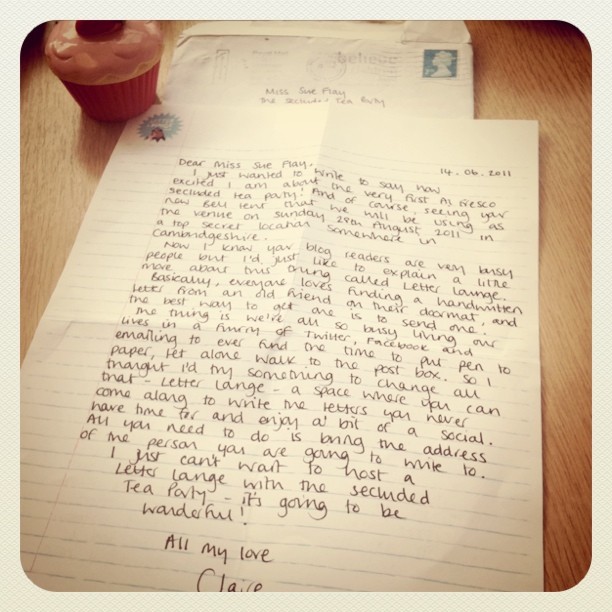 believe
Miss Sue Flay
The Secluded Tea Party
14.06.2011
Dear Miss Sue Flay,
I just wanted to write to say how
excited I am about the very first Al Fresco
Secluded Tea Party! And of course, seeing your
new Bell Tent that we will be using as
the venue on Sunday 28th August 2011 in
a top secret location somewhere in
Cambridgeshire.
Now I know your blog readers are very busy
people but I'd just like to explain a little
more about this thing called Letter Lounge.
Basically, everyone loves finding a handwritten
letter from an old friend on their doormat, and
the best way to get one is to send one.
The thing is we're all so busy living our
lives in a flurry of Twitter, Facebook and
emailing to ever find the time to put pen to
paper, let alone walk to the post box. So I
thought I'd try something to change all
that - Letter Lounge - a space where you can
come along to write the letters you never
have time for and enjoy a bit of a social.
All you need to do is bring the address
of the person you are going to write to.
I just can't wait to host a
Letter Lounge with the Secluded
Tea Party - it's going to be
wonderful!
All my love
Claire